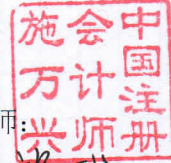 中国注册
会计师
施万兴
币：